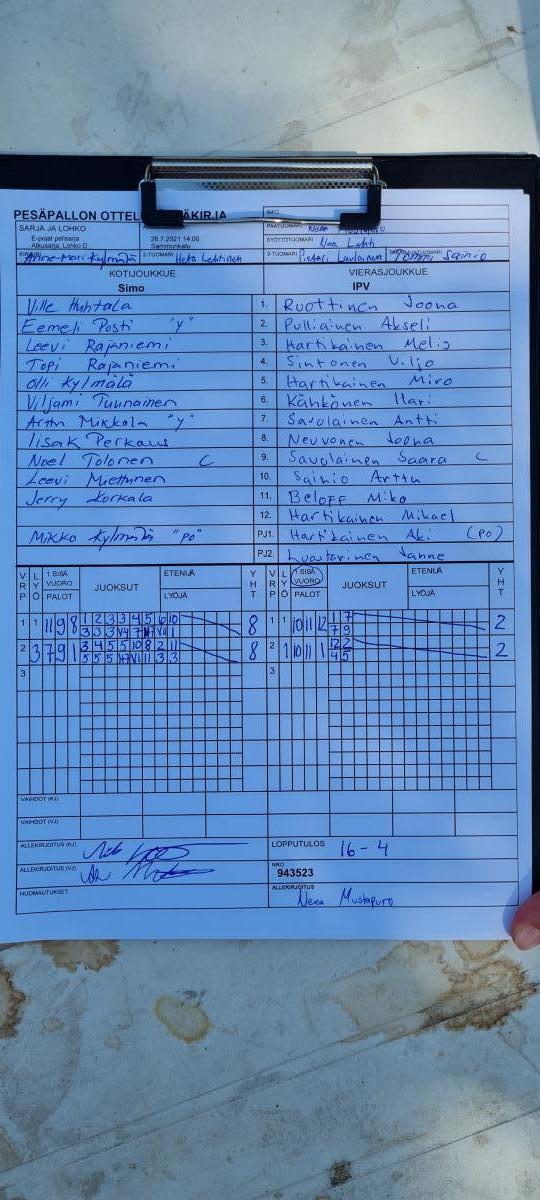 PESÄPALLON OTTEL KIRJA
INFO
SARJA JA LOHKO
E-pojat pelisarja
Alkusarja, Lohko D
26.7.2021 14:00
Sammonkatu
PÄÄTUOMARI Neea Mustapuro
SYÖTTÖTUOMARI Noa Lahti
KIRJURI Anne-Mari Kylmälä 2-TUOMARI Heta Lehtinen 3-TUOMARI Pietari Tommi Sainio
KOTIJOUKKUE VIERASJOUKKUE
Simo IPV
Ville Huhtala 1. Ruottinen Joona
Eemeli Posti "y" 2. Pulliainen Akseli
Leevi Rajaniemi 3. Hartikainen
Topi Rajaniemi 4. Sintonen Viljo
Olli Kylmälä 5. Hartikainen Miro
Viljami Tuunainen 6. Kähkönen Ilari
Arttu Mikkola "y" 7. Savolainen Antti
Iisak Perkaus 8. Neuvonen Joona
Noel Tolonen C 9. Savolainen Saara C
Leevi Miettunen 10. Sainio Arttu
Jerry Korkala 11. Beloff Miko
12. Hartikainen Mikael
Mikko Kylmälä "PO" PJ1. Hartikainen Aki (PO)
PJ2. Luostarinen Janne
VRP LYÖ 1 SISÄ VUORO PALOT JUOKSUT ETENIJÄ LYÖJÄ YHT VRP LYÖ 1 SISÄ VUORO PALOT JUOKSUT ETENIJÄ LYÖJÄ YHT
1 1 11 9 8 1 2 3 3 4 5 6 10 8 1 1 10 11 12 1 7 2
3 3 3 7 7 9
2 3 7 9 1 3 4 5 5 10 8 2 11 8 2 1 10 11 1 12 2 2
5 5 5 11 3 3 4 5
3 3
VAIHDOT (KJ)
VAIHDOT (VJ)
ALLEKIRJOITUS (KJ) LOPPUTULOS 16-4
ALLEKIRJOITUS (VJ) NRO 943523
HUOMAUTUKSET ALLEKIRJOITUS Neea Mustapuro